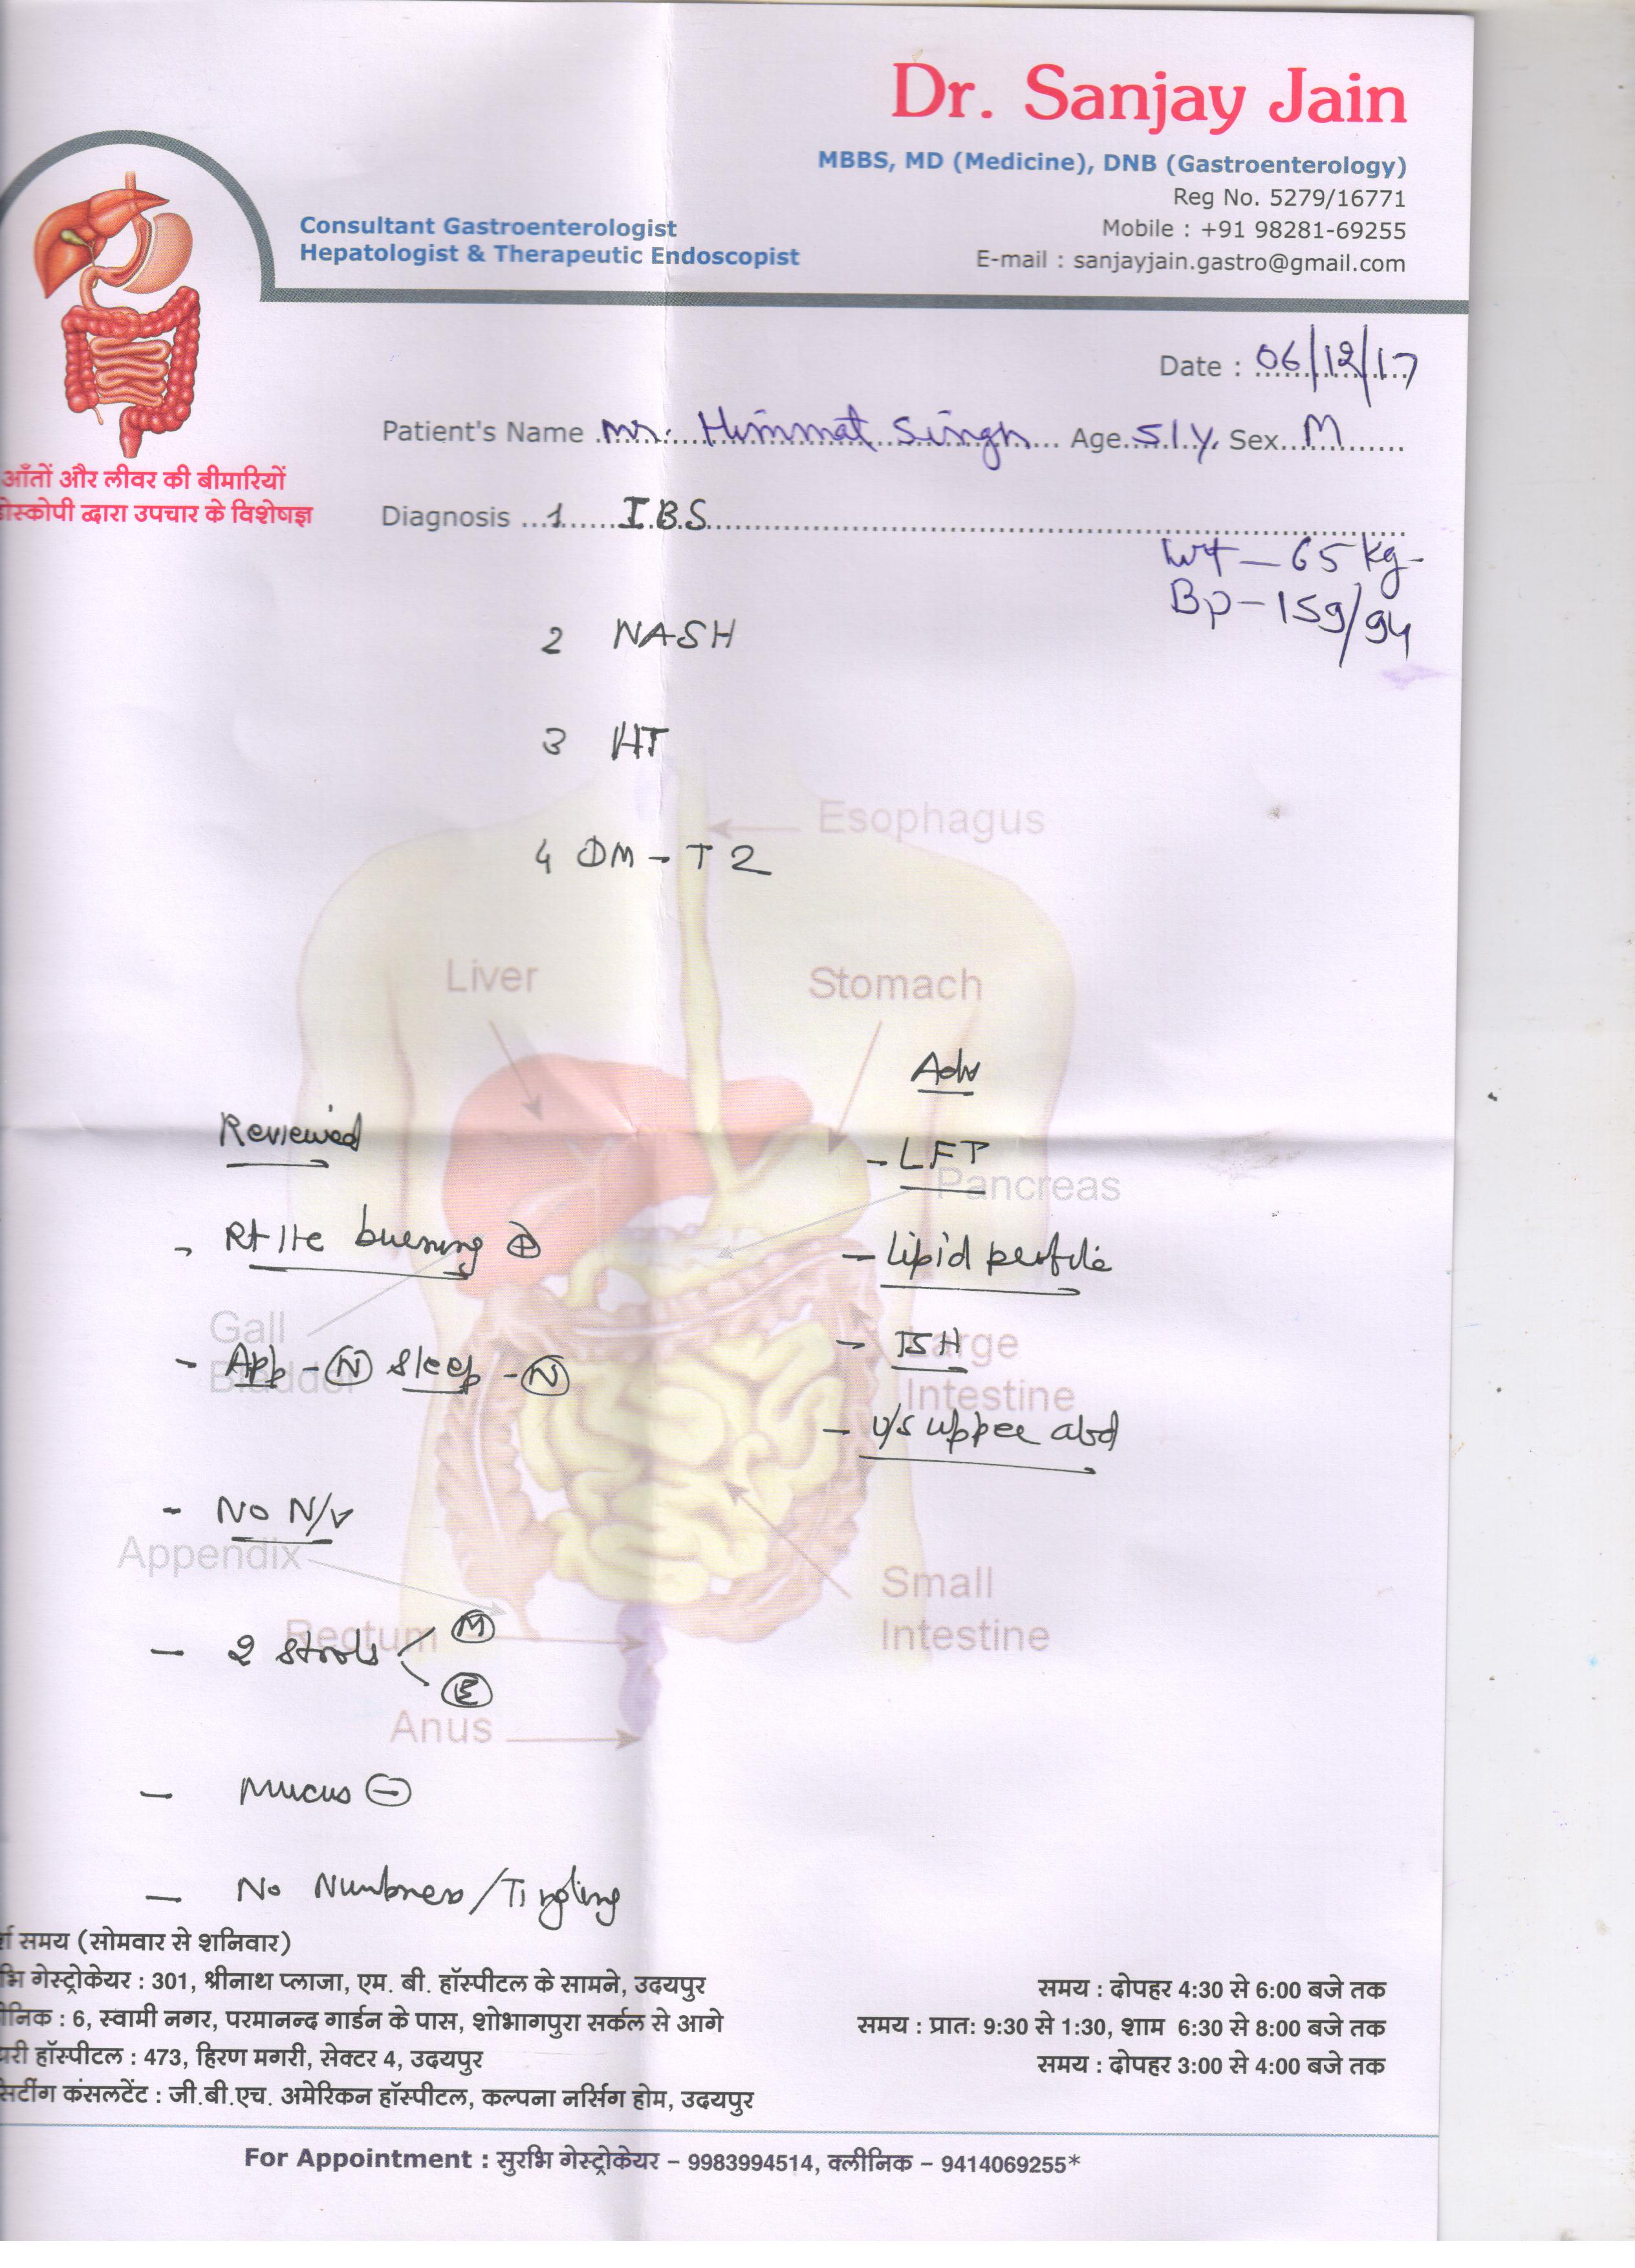 Dr. Sanjay Jain
MBBS, MD (Medicine), DNB (Gastroenterology)
Reg No. 5279/16771
Mobile : +91 98281-69255
E-mail : sanjayjain.gastro@gmail.com
Consultant Gastroenterologist
Hepatologist & Therapeutic Endoscopist
आँतों और लीवर की बीमारियों
डोस्कोपी द्वारा उपचार के विशेषज्ञ
Date : 06/12/17
Patient's Name Mr. Himmat Singh Age 51y. Sex M
Diagnosis 1 IBS
Wt - 65 Kg-
Bp - 159/94
2 NASH
3 HT
4 DM - T2
Esophagus
Liver
Stomach
Adv
Reviewed
- LFT
Pancreas
- burning ⊕
- Lipid profile
Gall
Bladder
- TSH
Large
Intestine
- App - Ⓝ sleep - Ⓝ
- U/S upper abd
- No N/V
Appendix
Small
Intestine
Rectum
- 2 stools Ⓜ
Ⓔ
Anus
- Mucus ⊖
- No Numbness/Tingling
समय (सोमवार से शनिवार)
भि गेस्ट्रोकेयर : 301, श्रीनाथ प्लाजा, एम. बी. हॉस्पीटल के सामने, उदयपुर
समय : दोपहर 4:30 से 6:00 बजे तक
निक : 6, स्वामी नगर, परमानन्द गार्डन के पास, शोभागपुरा सर्कल से आगे
समय : प्रात: 9:30 से 1:30, शाम 6:30 से 8:00 बजे तक
री हॉस्पीटल : 473, हिरण मगरी, सेक्टर 4, उदयपुर
समय : दोपहर 3:00 से 4:00 बजे तक
सर्टींग कंसलटेंट : जी.बी.एच. अमेरिकन हॉस्पीटल, कल्पना नर्सिग होम, उदयपुर
For Appointment : सुरभि गेस्ट्रोकेयर – 9983994514, क्लीनिक – 9414069255*